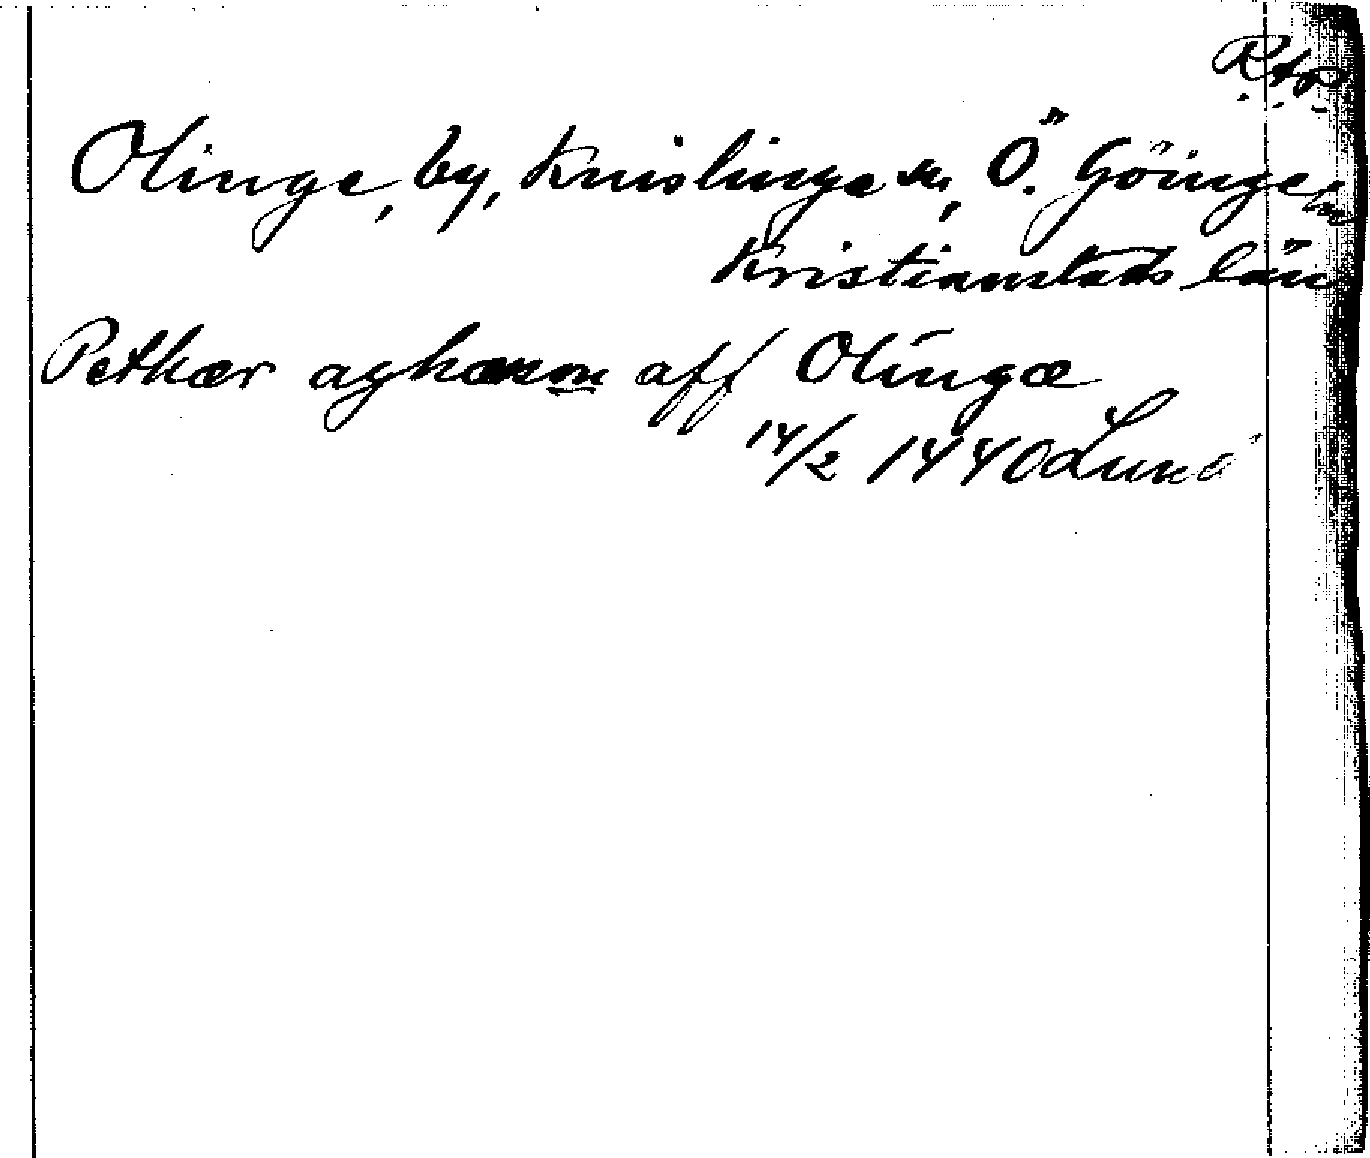 R.A.P.
Olinge, by, Knislinge sn, Ö. Göinge hd
Kristianstads län
Pethær aghæson aff Olingæ
14/2 1440 Lund